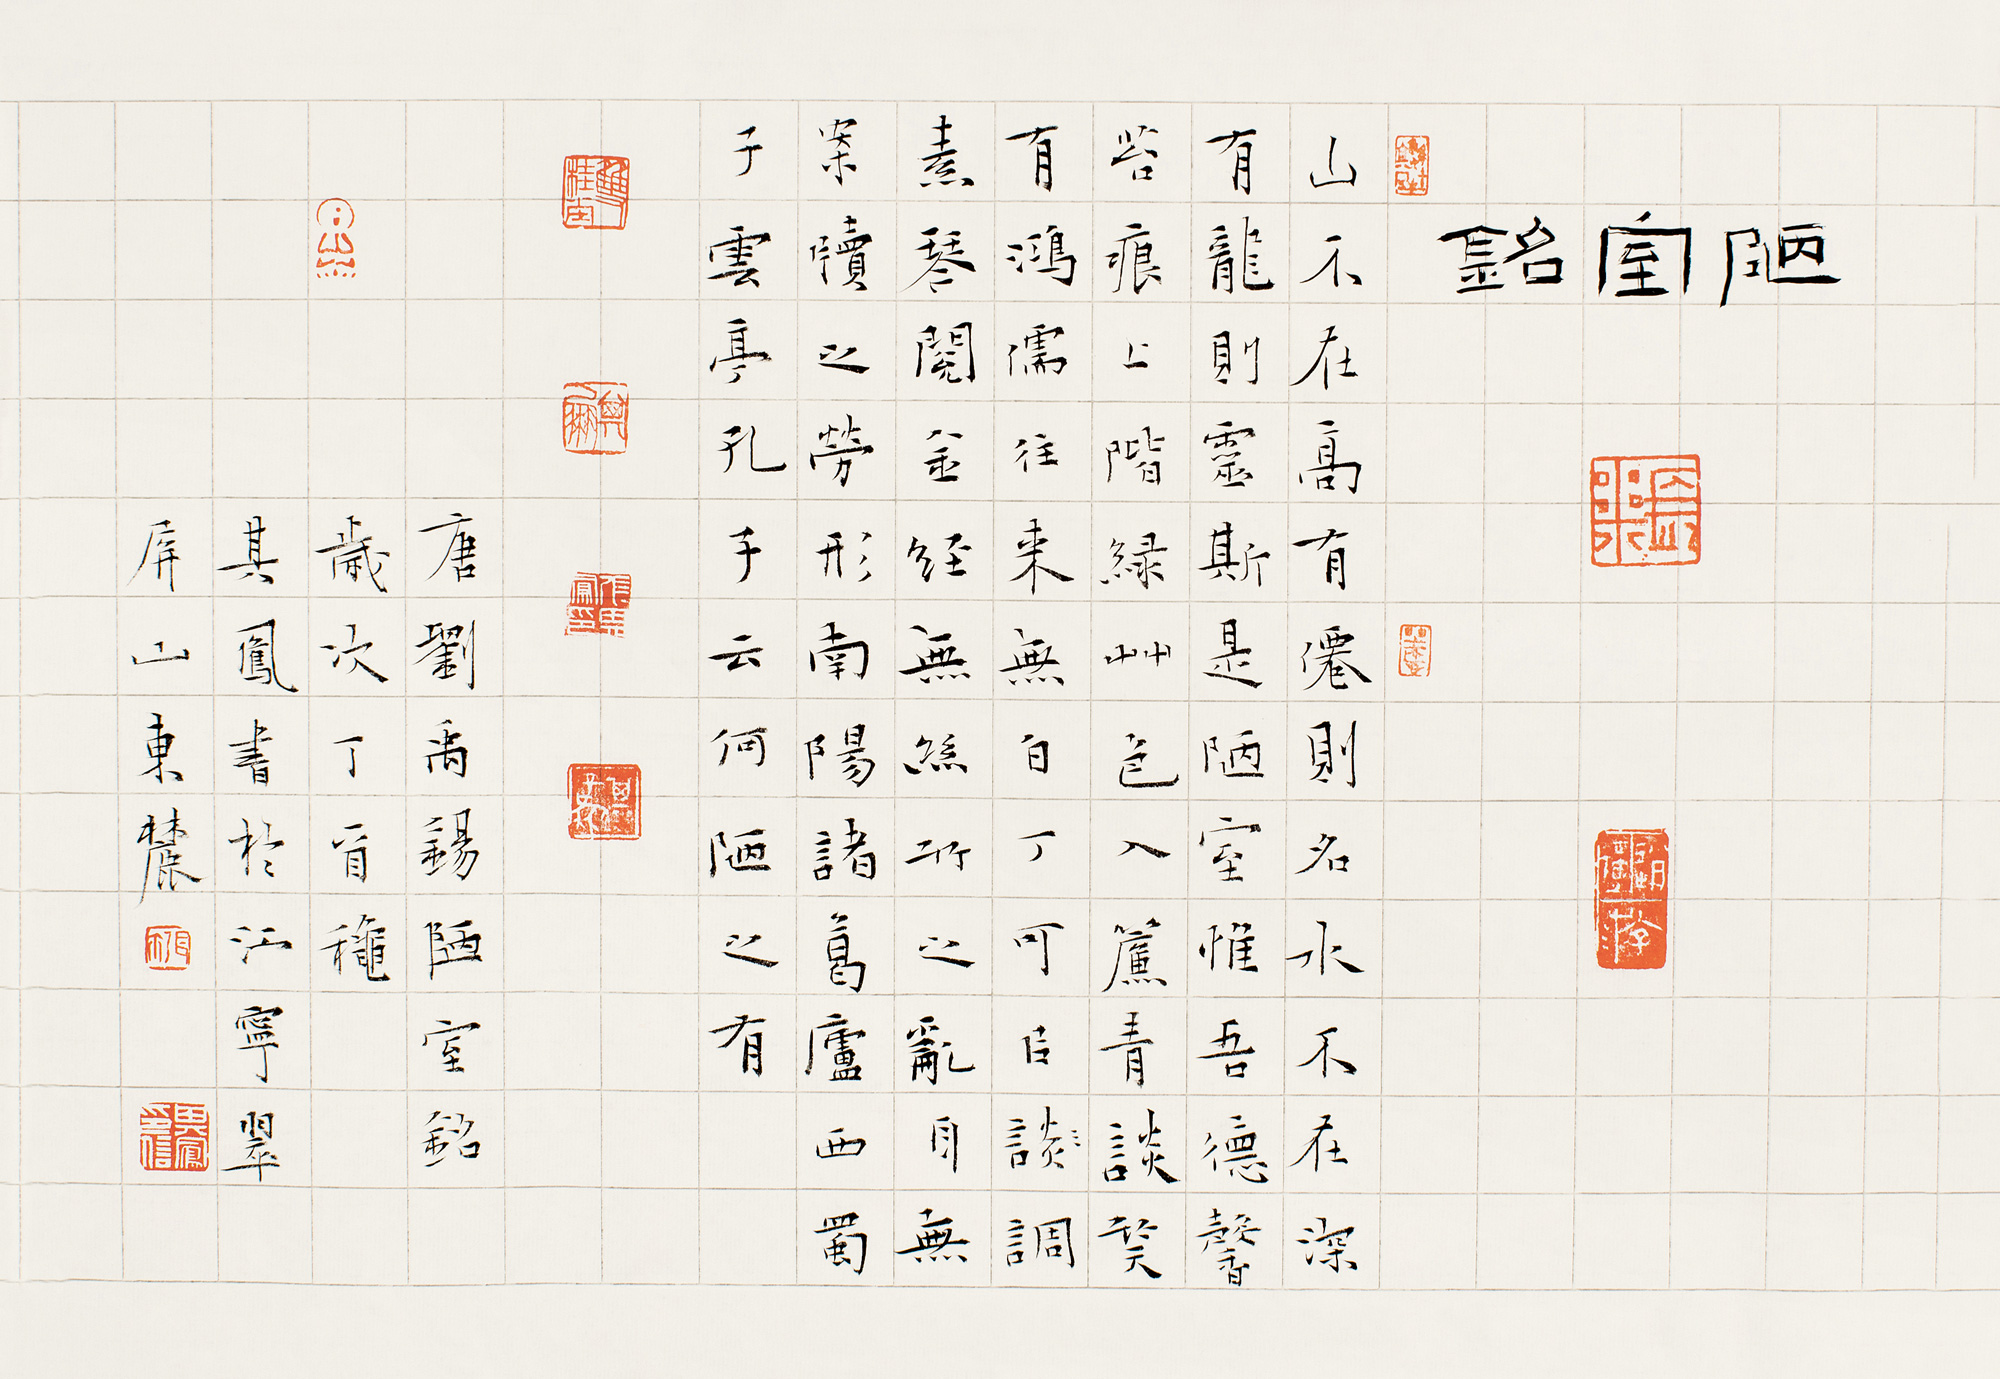 陋室銘
山不在高有僊則名水不在深
有龍則靈斯是陋室惟吾德馨
苔痕上階緑艸色入簾青談笑
有鴻儒往来無白丁可㠯談調
素琴閱金経無絲竹之亂耳無
案牘之勞形南陽諸葛廬西蜀
子雲亭孔子云何陋之有
唐劉禹錫陋室銘
歲次丁酉穐
其鳳書於江寧翠
屏山東麓